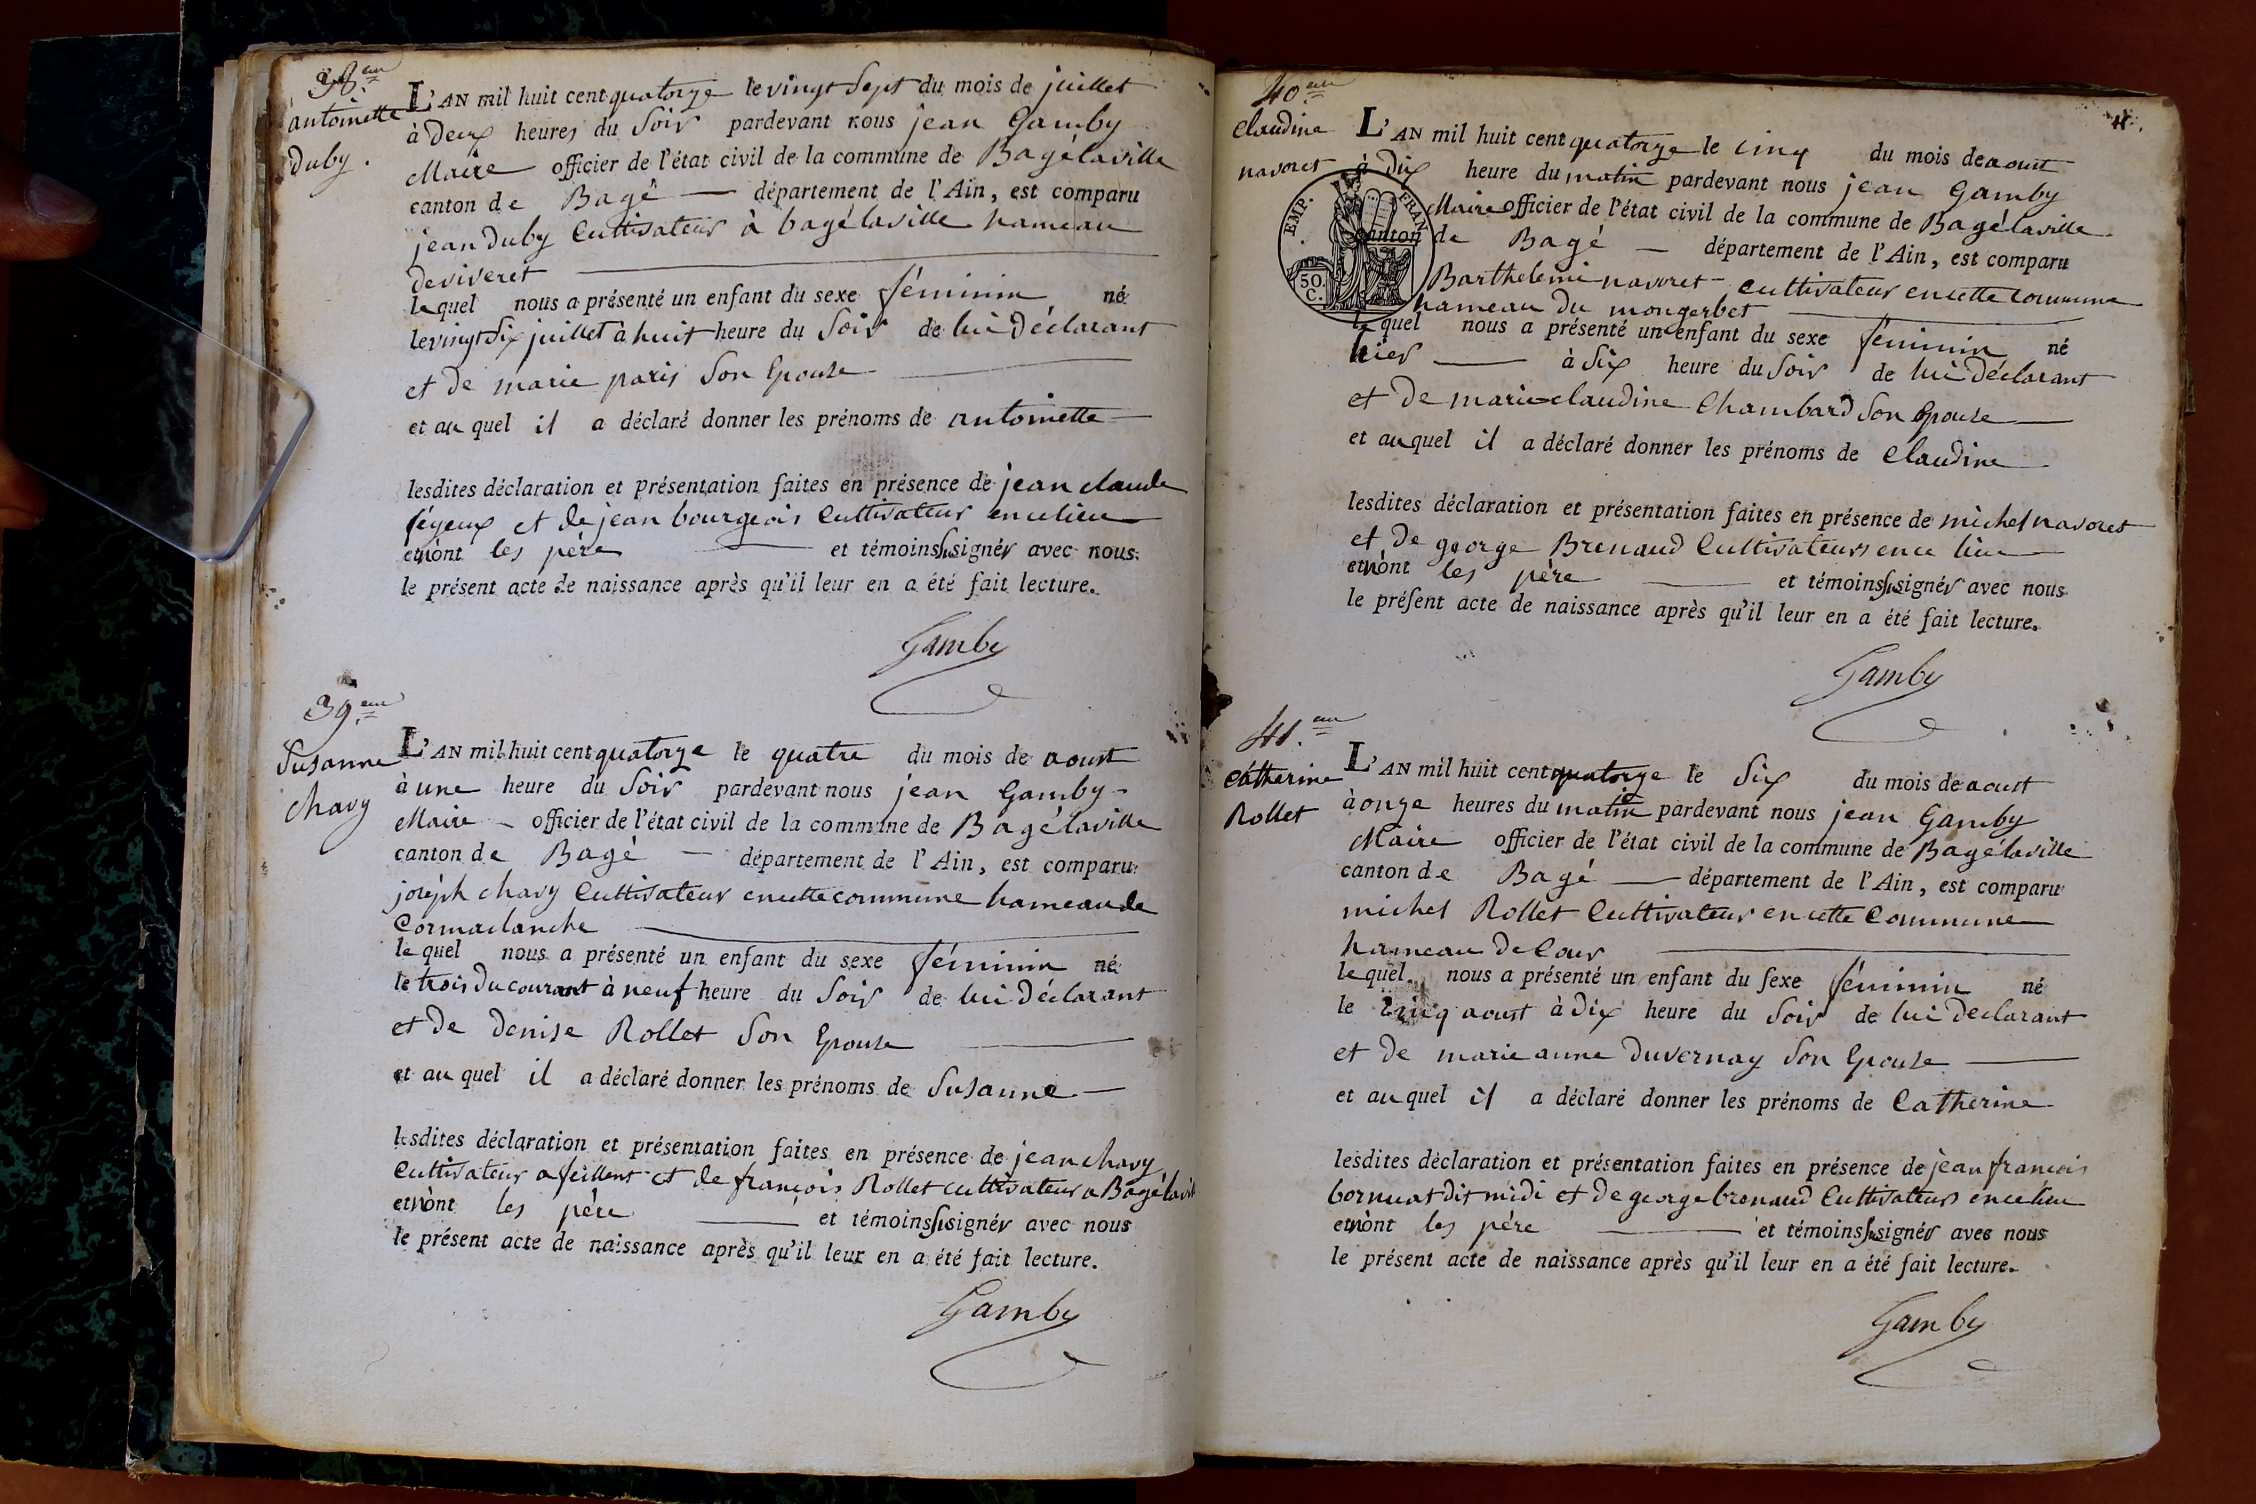 38.em
antoinette
duby.
L'AN mil huit cent quatorze le vingt Sept du mois de juillet
à Deux heures du Soir pardevant nous jean Gamby
Maire officier de l'état civil de la commune de Bagélaville
canton de Bagé — département de l'Ain, est comparu
jean duby Cultivateur à bagélaville hameau
deviveret
lequel nous a présenté un enfant du sexe féminin né
le vingt Six juillet à huit heure du Soir de lui Déclarant
et de marie paris Son Epouse
et au quel il a déclaré donner les prénoms de antoinette
lesdites déclaration et présentation faites en présence de jean claude
féyeux et de jean bourgeois Cultivateur en ce lieu
et n'ont les père et témoins Su signér avec nous
le présent acte de naissance après qu'il leur en a été fait lecture.
Gamby
39.em
Susanne
Chavy
L'AN mil huit cent quatorze le quatre du mois de aoust
à une heure du Soir pardevant nous jean Gamby
Maire officier de l'état civil de la commune de Bagélaville
canton de Bagé — département de l'Ain, est comparu
joséph chavy Cultivateur en cette commune hameau de
Cormaclanche
lequel nous a présenté un enfant du sexe féminin né
le trois Du courant à neuf heure du Soir de lui Déclarant
et de denise Rollet Son Epouse
et au quel il a déclaré donner les prénoms de Susanne
lesdites déclaration et présentation faites en présence de jean chavy
Cultivateur a feillens et de françois Rollet cultivateur a Bagélaville
et n'ont les père et témoins Su signér avec nous
le présent acte de naissance après qu'il leur en a été fait lecture.
Gamby
40.em
Claudine
navoret
EMP. FRAN
50. C.
L'AN mil huit cent quatorze le cinq du mois de aoust
à Dix heure du matin pardevant nous jean Gamby
Maire officier de l'état civil de la commune de Bagélaville
canton de Bagé — département de l'Ain, est comparu
Barthelemi navoret cultivateur en cette commune
hameau du mongerbet
lequel nous a présenté un enfant du sexe féminin né
hier à Six heure du Soir de lui déclarant
et de marie claudine Chambard Son Epouse
et au quel il a déclaré donner les prénoms de Claudine
lesdites déclaration et présentation faites en présence de michel navoret
et de george Brenaud Cultivateurs en ce lieu
et n'ont les père et témoins Su signér avec nous
le présent acte de naissance après qu'il leur en a été fait lecture.
Gamby
41.em
Catherine
Rollet
L'AN mil huit cent quatorze le Six du mois de aoust
à onze heures du matin pardevant nous jean Gamby
Maire officier de l'état civil de la commune de Bagélaville
canton de Bagé — département de l'Ain, est comparu
michel Rollet Cultivateur en cette Commune
hameau De Cour
lequel nous a présenté un enfant du sexe féminin né
le cinq aoust à Dix heure du Soir de lui Declarant
et de marie anne Duvernay Son Epouse
et au quel il a déclaré donner les prénoms de Catherine
lesdites déclaration et présentation faites en présence de jean françois
bornuat dit midi et de george brenaud Cultivateurs en ce lieu
et n'ont les père et témoins Su signér avec nous
le présent acte de naissance après qu'il leur en a été fait lecture.
Gamby